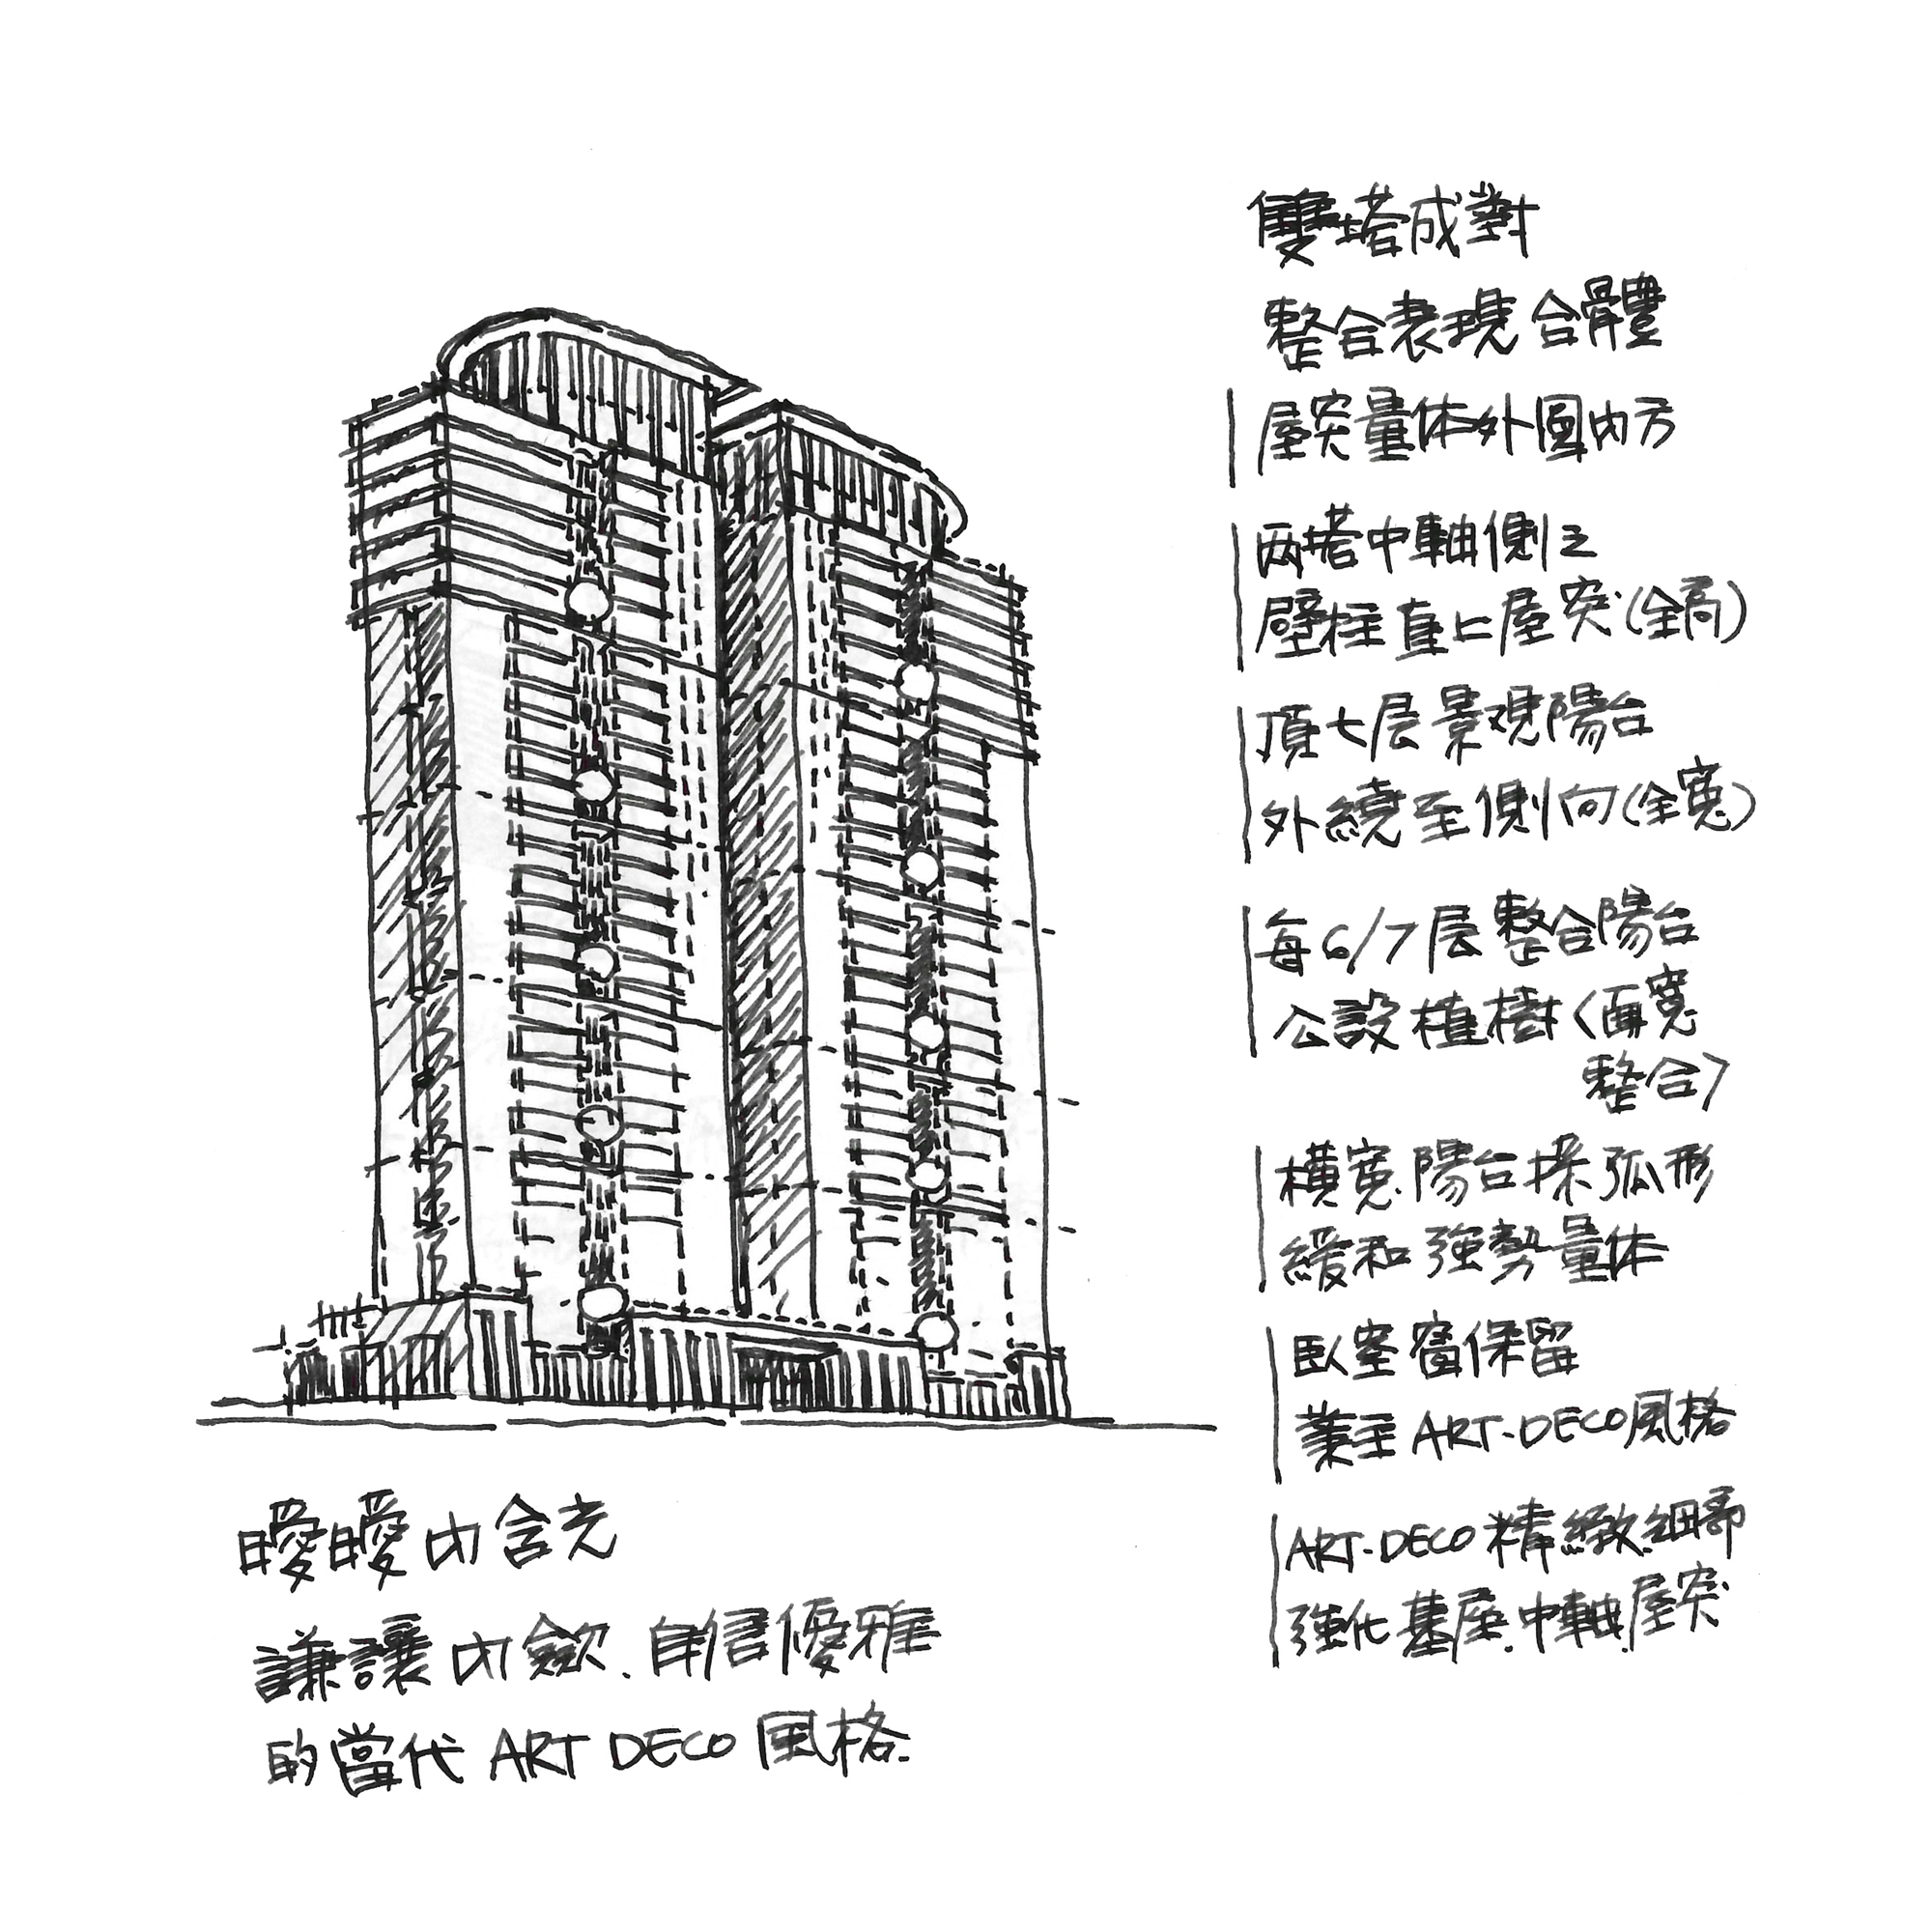 雙塔成對
整合表現合體
屋突量体外圓內方
兩塔中軸側之
壁柱直上屋突(全高)
頂七层景观陽台
外繞至側向(全寬)
每6/7层整合陽台
公設植樹〈面寬
整合〉
橫寬陽台採弧形
緩和強勢量体
臥室窗保留
業主ART-DECO風格
ART-DECO精緻細部
強化基座.中軸.屋突
曖曖內含光
謙讓內斂.自信優雅
的當代 ART DECO 風格.